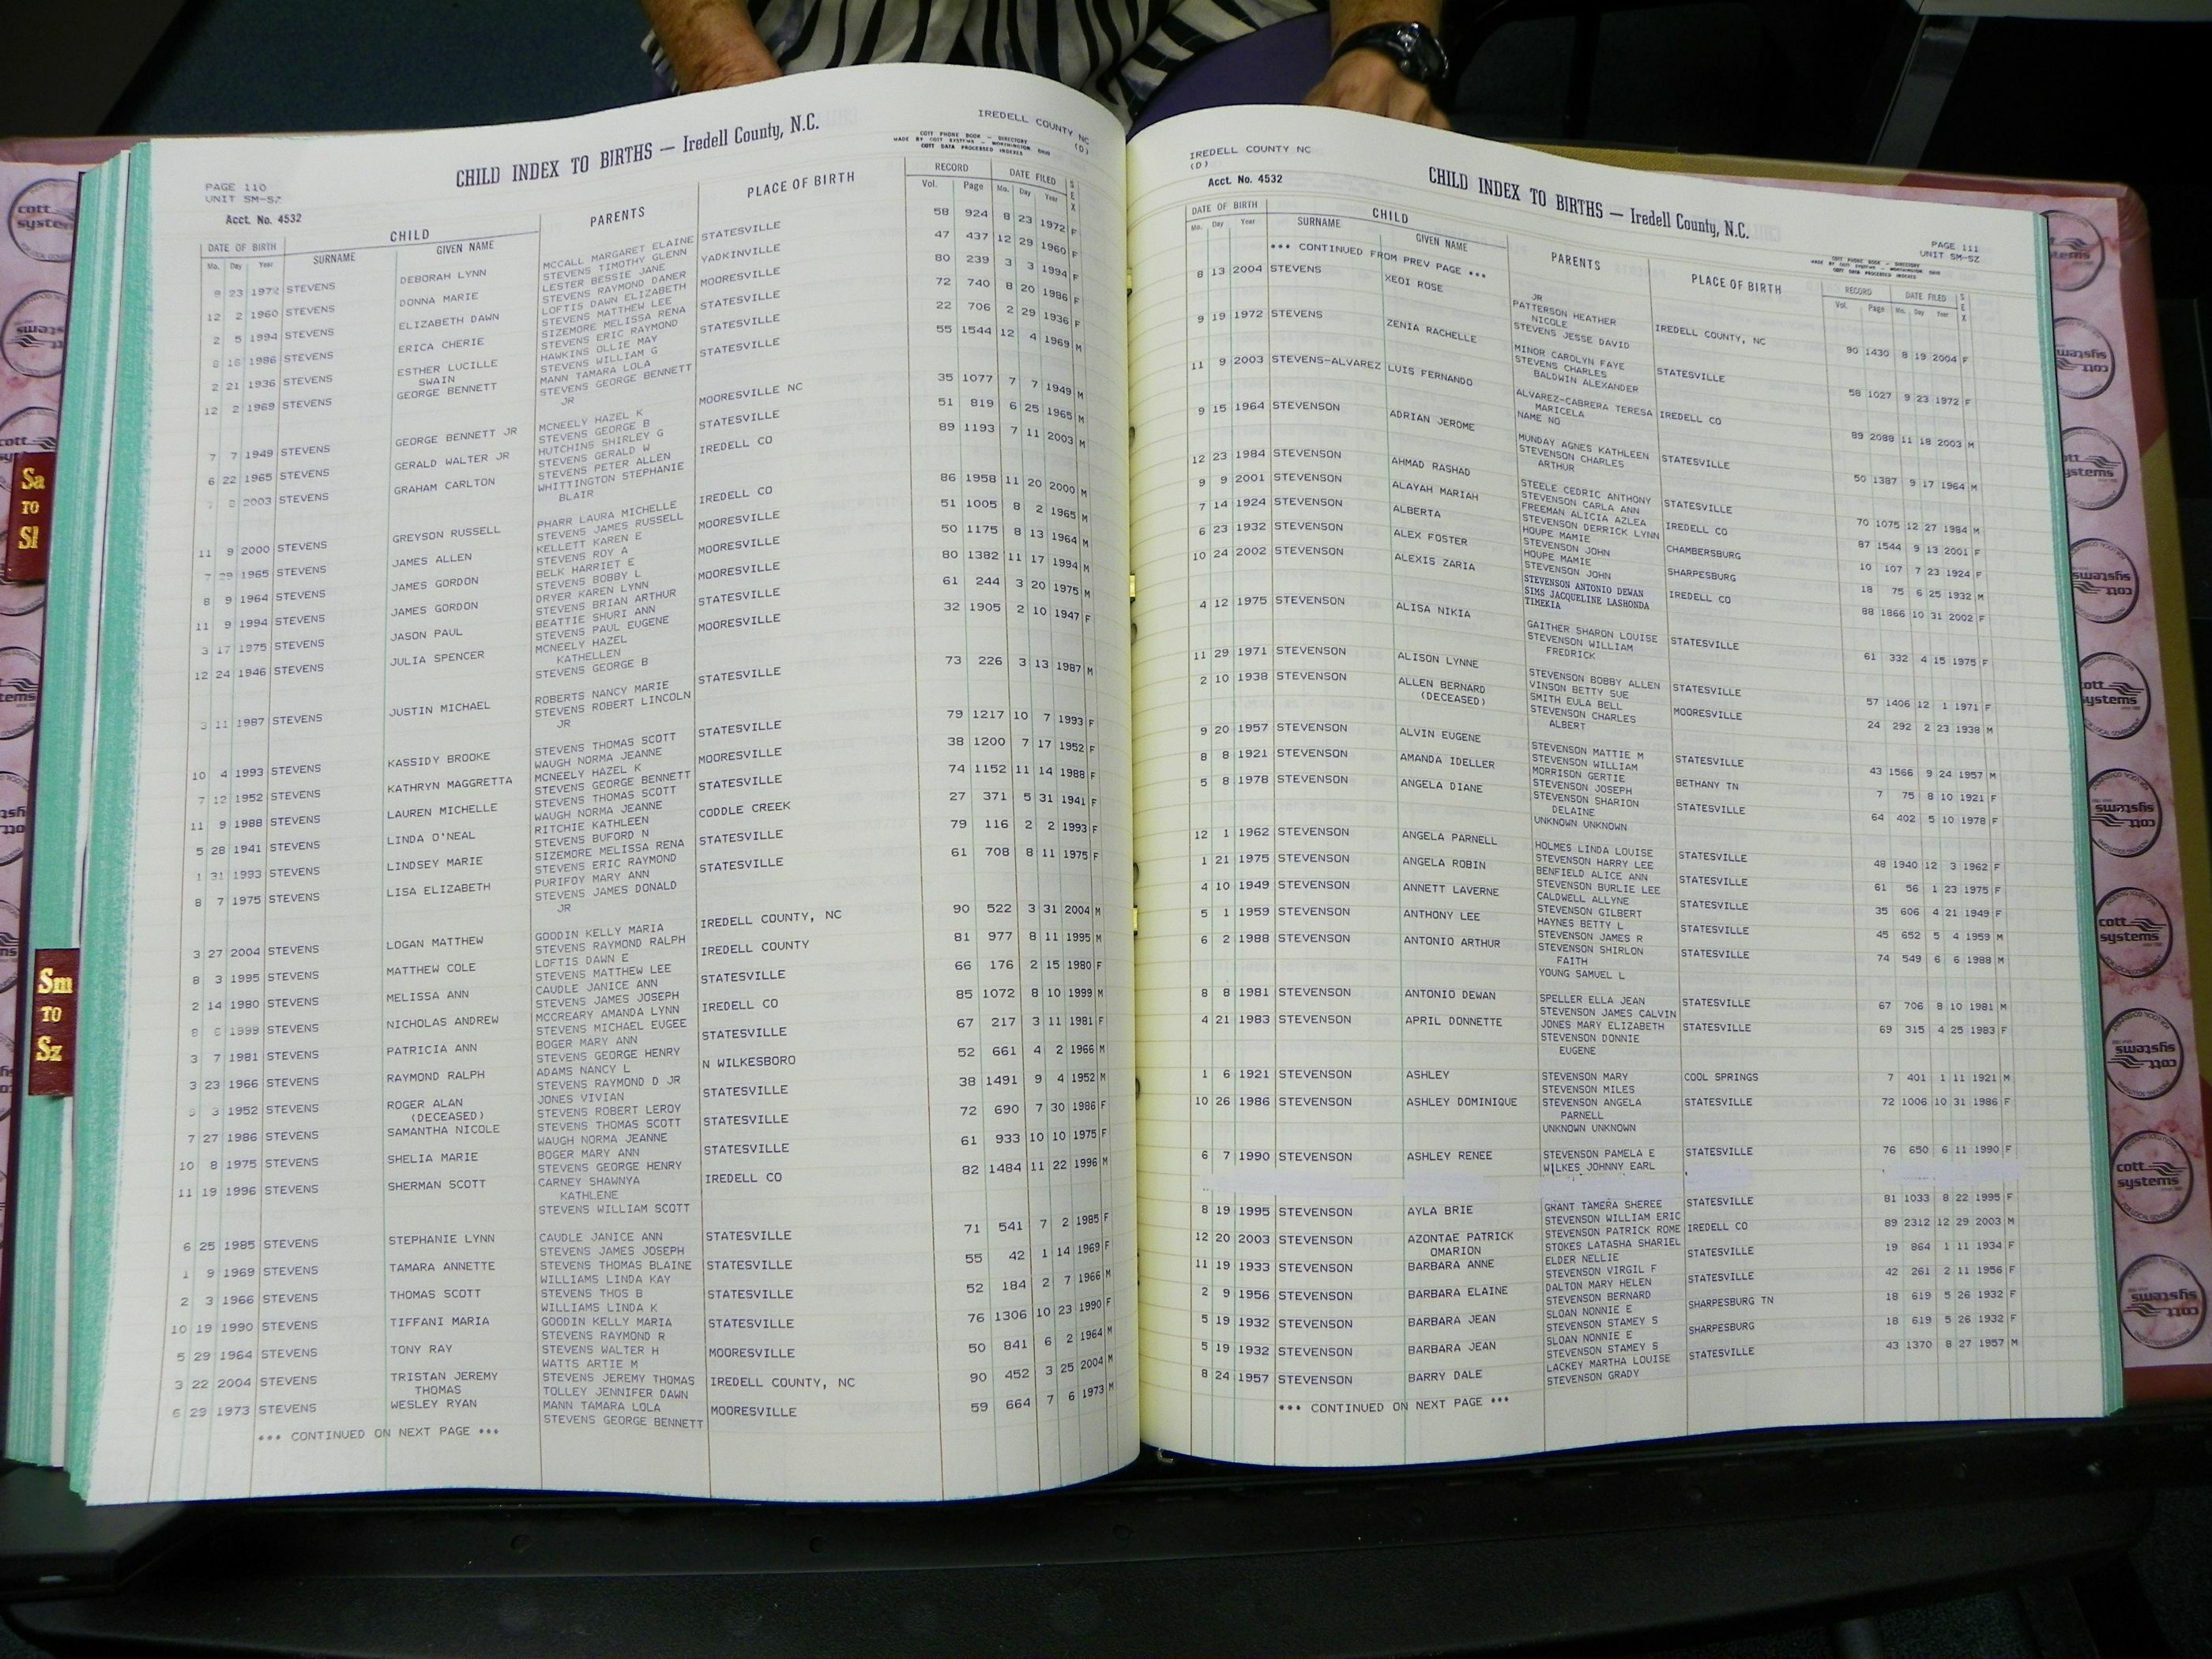 CHILD INDEX TO BIRTHS — Iredell County, N.C.
IREDELL COUNTY NC
(D)
COTT PHONE BOOK — DIRECTORY
MADE BY COTT SYSTEMS — WORTHINGTON, OHIO
COTT DATA PROCESSED INDEXES
PAGE 110
UNIT SM-SZ
Acct. No. 4532
DATE OF BIRTH CHILD PARENTS PLACE OF BIRTH RECORD DATE FILED SEX
Mo. Day Year SURNAME GIVEN NAME Vol. Page Mo. Day Year
8 23 1972 STEVENS DEBORAH LYNN MCCALL MARGARET ELAINE STATESVILLE 58 924 8 23 1972 F
STEVENS TIMOTHY GLENN
12 2 1960 STEVENS DONNA MARIE LESTER BESSIE JANE YADKINVILLE 47 437 12 29 1960 F
STEVENS RAYMOND DANER
2 5 1994 STEVENS ELIZABETH DAWN LOFTIS DAWN ELIZABETH MOORESVILLE 80 239 3 3 1994 F
STEVENS MATTHEW LEE
8 16 1986 STEVENS ERICA CHERIE SIZEMORE MELISSA RENA STATESVILLE 72 740 8 20 1986 F
STEVENS ERIC RAYMOND
2 21 1936 STEVENS ESTHER LUCILLE HAWKINS OLLIE MAY STATESVILLE 22 706 2 29 1936 F
SWAIN STEVENS WILLIAM G
12 2 1969 STEVENS GEORGE BENNETT MANN TAMARA LOLA STATESVILLE 55 1544 12 4 1969 M
STEVENS GEORGE BENNETT
JR
7 7 1949 STEVENS GEORGE BENNETT JR MCNEELY HAZEL K MOORESVILLE NC 35 1077 7 7 1949 M
STEVENS GEORGE B
6 22 1965 STEVENS GERALD WALTER JR HUTCHINS SHIRLEY G STATESVILLE 51 819 6 25 1965 M
STEVENS GERALD W
7 8 2003 STEVENS GRAHAM CARLTON STEVENS PETER ALLEN IREDELL CO 89 1193 7 11 2003 M
WHITTINGTON STEPHANIE
BLAIR
11 9 2000 STEVENS GREYSON RUSSELL PHARR LAURA MICHELLE IREDELL CO 86 1958 11 20 2000 M
STEVENS JAMES RUSSELL
7 29 1965 STEVENS JAMES ALLEN KELLETT KAREN E MOORESVILLE 51 1005 8 2 1965 M
STEVENS ROY A
8 9 1964 STEVENS JAMES GORDON BELK HARRIET E MOORESVILLE 50 1175 8 13 1964 M
STEVENS BOBBY L
11 9 1994 STEVENS JAMES GORDON DRYER KAREN LYNN MOORESVILLE 80 1382 11 17 1994 M
STEVENS BRIAN ARTHUR
3 17 1975 STEVENS JASON PAUL BEATTIE SHURI ANN STATESVILLE 61 244 3 20 1975 M
STEVENS PAUL EUGENE
12 24 1946 STEVENS JULIA SPENCER MCNEELY HAZEL MOORESVILLE 32 1905 2 10 1947 F
KATHELLEN
STEVENS GEORGE B
3 11 1987 STEVENS JUSTIN MICHAEL ROBERTS NANCY MARIE STATESVILLE 73 226 3 13 1987 M
STEVENS ROBERT LINCOLN
JR
10 4 1993 STEVENS KASSIDY BROOKE STEVENS THOMAS SCOTT STATESVILLE 79 1217 10 7 1993 F
WAUGH NORMA JEANNE
7 12 1952 STEVENS KATHRYN MAGGRETTA MCNEELY HAZEL K MOORESVILLE 38 1200 7 17 1952 F
STEVENS GEORGE BENNETT
11 9 1988 STEVENS LAUREN MICHELLE STEVENS THOMAS SCOTT STATESVILLE 74 1152 11 14 1988 F
WAUGH NORMA JEANNE
5 28 1941 STEVENS LINDA O'NEAL RITCHIE KATHLEEN CODDLE CREEK 27 371 5 31 1941 F
STEVENS BUFORD N
1 31 1993 STEVENS LINDSEY MARIE SIZEMORE MELISSA RENA STATESVILLE 79 116 2 2 1993 F
STEVENS ERIC RAYMOND
8 7 1975 STEVENS LISA ELIZABETH PURIFOY MARY ANN STATESVILLE 61 708 8 11 1975 F
STEVENS JAMES DONALD
JR
3 27 2004 STEVENS LOGAN MATTHEW GOODIN KELLY MARIA IREDELL COUNTY, NC 90 522 3 31 2004 M
STEVENS RAYMOND RALPH
8 3 1995 STEVENS MATTHEW COLE LOFTIS DAWN E IREDELL COUNTY 81 977 8 11 1995 M
STEVENS MATTHEW LEE
2 14 1980 STEVENS MELISSA ANN CAUDLE JANICE ANN STATESVILLE 66 176 2 15 1980 F
STEVENS JAMES JOSEPH
8 6 1999 STEVENS NICHOLAS ANDREW MCCREARY AMANDA LYNN IREDELL CO 85 1072 8 10 1999 M
STEVENS MICHAEL EUGEE
3 7 1981 STEVENS PATRICIA ANN BOGER MARY ANN STATESVILLE 67 217 3 11 1981 F
STEVENS GEORGE HENRY
3 23 1966 STEVENS RAYMOND RALPH ADAMS NANCY L N WILKESBORO 52 661 4 2 1966 M
STEVENS RAYMOND D JR
3 1952 STEVENS ROGER ALAN JONES VIVIAN STATESVILLE 38 1491 9 4 1952 M
(DECEASED) STEVENS ROBERT LEROY
7 27 1986 STEVENS SAMANTHA NICOLE STEVENS THOMAS SCOTT STATESVILLE 72 690 7 30 1986 F
WAUGH NORMA JEANNE
10 8 1975 STEVENS SHELIA MARIE BOGER MARY ANN STATESVILLE 61 933 10 10 1975 F
STEVENS GEORGE HENRY
11 19 1996 STEVENS SHERMAN SCOTT CARNEY SHAWNYA IREDELL CO 82 1484 11 22 1996 M
KATHLENE
STEVENS WILLIAM SCOTT
6 25 1985 STEVENS STEPHANIE LYNN CAUDLE JANICE ANN STATESVILLE 71 541 7 2 1985 F
STEVENS JAMES JOSEPH
1 9 1969 STEVENS TAMARA ANNETTE STEVENS THOMAS BLAINE STATESVILLE 55 42 1 14 1969 F
WILLIAMS LINDA KAY
2 3 1966 STEVENS THOMAS SCOTT STEVENS THOS B STATESVILLE 52 184 2 7 1966 M
WILLIAMS LINDA K
10 19 1990 STEVENS TIFFANI MARIA GOODIN KELLY MARIA STATESVILLE 76 1306 10 23 1990 F
STEVENS RAYMOND R
5 29 1964 STEVENS TONY RAY STEVENS WALTER H MOORESVILLE 50 841 6 2 1964 M
WATTS ARTIE M
3 22 2004 STEVENS TRISTAN JEREMY STEVENS JEREMY THOMAS IREDELL COUNTY, NC 90 452 3 25 2004 M
THOMAS TOLLEY JENNIFER DAWN
6 29 1973 STEVENS WESLEY RYAN MANN TAMARA LOLA MOORESVILLE 59 664 7 6 1973 M
STEVENS GEORGE BENNETT
*** CONTINUED ON NEXT PAGE ***
IREDELL COUNTY NC
(D)
Acct. No. 4532
CHILD INDEX TO BIRTHS — Iredell County, N.C.
PAGE 111
UNIT SM-SZ
COTT PHONE BOOK — DIRECTORY
MADE BY COTT SYSTEMS — WORTHINGTON, OHIO
COTT DATA PROCESSED INDEXES
DATE OF BIRTH CHILD PARENTS PLACE OF BIRTH RECORD DATE FILED SEX
Mo. Day Year SURNAME GIVEN NAME Vol. Page Mo. Day Year
*** CONTINUED FROM PREV PAGE ***
JR
8 13 2004 STEVENS XEOI ROSE PATTERSON HEATHER IREDELL COUNTY, NC 90 1430 8 19 2004 F
NICOLE
STEVENS JESSE DAVID
9 19 1972 STEVENS ZENIA RACHELLE MINOR CAROLYN FAYE STATESVILLE 58 1027 9 23 1972 F
STEVENS CHARLES
BALDWIN ALEXANDER
11 9 2003 STEVENS-ALVAREZ LUIS FERNANDO ALVAREZ-CABRERA TERESA IREDELL CO 89 2088 11 18 2003 M
MARICELA
NAME NO
9 15 1964 STEVENSON ADRIAN JEROME MUNDAY AGNES KATHLEEN STATESVILLE 50 1387 9 17 1964 M
STEVENSON CHARLES
ARTHUR
12 23 1984 STEVENSON AHMAD RASHAD STEELE CEDRIC ANTHONY STATESVILLE 70 1075 12 27 1984 M
STEVENSON CARLA ANN
9 9 2001 STEVENSON ALAYAH MARIAH FREEMAN ALICIA AZLEA IREDELL CO 87 1544 9 13 2001 F
STEVENSON DERRICK LYNN
7 14 1924 STEVENSON ALBERTA HOUPE MAMIE CHAMBERSBURG 10 107 7 23 1924 F
STEVENSON JOHN
6 23 1932 STEVENSON ALEX FOSTER HOUPE MAMIE SHARPESBURG 18 75 6 25 1932 M
STEVENSON JOHN
10 24 2002 STEVENSON ALEXIS ZARIA STEVENSON ANTONIO DEWAN IREDELL CO 88 1866 10 31 2002 F
SIMS JACQUELINE LASHONDA
TIMEKIA
4 12 1975 STEVENSON ALISA NIKIA GAITHER SHARON LOUISE STATESVILLE 61 332 4 15 1975 F
STEVENSON WILLIAM
FREDRICK
11 29 1971 STEVENSON ALISON LYNNE STEVENSON BOBBY ALLEN STATESVILLE 57 1406 12 1 1971 F
VINSON BETTY SUE
2 10 1938 STEVENSON ALLEN BERNARD SMITH EULA BELL MOORESVILLE 24 292 2 23 1938 M
(DECEASED) STEVENSON CHARLES
ALBERT
9 20 1957 STEVENSON ALVIN EUGENE STEVENSON MATTIE M STATESVILLE 43 1566 9 24 1957 M
STEVENSON WILLIAM
8 8 1921 STEVENSON AMANDA IDELLER MORRISON GERTIE BETHANY TN 7 75 8 10 1921 F
STEVENSON JOSEPH
5 8 1978 STEVENSON ANGELA DIANE STEVENSON SHARION STATESVILLE 64 402 5 10 1978 F
DELAINE
UNKNOWN UNKNOWN
12 1 1962 STEVENSON ANGELA PARNELL HOLMES LINDA LOUISE STATESVILLE 48 1940 12 3 1962 F
STEVENSON HARRY LEE
1 21 1975 STEVENSON ANGELA ROBIN BENFIELD ALICE ANN STATESVILLE 61 56 1 23 1975 F
STEVENSON BURLIE LEE
4 10 1949 STEVENSON ANNETT LAVERNE CALDWELL ALLYNE STATESVILLE 35 606 4 21 1949 F
STEVENSON GILBERT
5 1 1959 STEVENSON ANTHONY LEE HAYNES BETTY L STATESVILLE 45 652 5 4 1959 M
STEVENSON JAMES R
6 2 1988 STEVENSON ANTONIO ARTHUR STEVENSON SHIRLON STATESVILLE 74 549 6 6 1988 M
FAITH
YOUNG SAMUEL L
8 8 1981 STEVENSON ANTONIO DEWAN SPELLER ELLA JEAN STATESVILLE 67 706 8 10 1981 M
STEVENSON JAMES CALVIN
4 21 1983 STEVENSON APRIL DONNETTE JONES MARY ELIZABETH STATESVILLE 69 315 4 25 1983 F
STEVENSON DONNIE
EUGENE
1 6 1921 STEVENSON ASHLEY STEVENSON MARY COOL SPRINGS 7 401 1 11 1921 M
STEVENSON MILES
10 26 1986 STEVENSON ASHLEY DOMINIQUE STEVENSON ANGELA STATESVILLE 72 1006 10 31 1986 F
PARNELL
UNKNOWN UNKNOWN
6 7 1990 STEVENSON ASHLEY RENEE STEVENSON PAMELA E STATESVILLE 76 650 6 11 1990 F
WILKES JOHNNY EARL
8 19 1995 STEVENSON AYLA BRIE GRANT TAMERA SHEREE STATESVILLE 81 1033 8 22 1995 F
STEVENSON WILLIAM ERIC
12 20 2003 STEVENSON AZONTAE PATRICK STEVENSON PATRICK ROME IREDELL CO 89 2312 12 29 2003 M
OMARION STOKES LATASHA SHARIEL
11 19 1933 STEVENSON BARBARA ANNE ELDER NELLIE STATESVILLE 19 864 1 11 1934 F
STEVENSON VIRGIL F
2 9 1956 STEVENSON BARBARA ELAINE DALTON MARY HELEN STATESVILLE 42 261 2 11 1956 F
STEVENSON BERNARD
5 19 1932 STEVENSON BARBARA JEAN SLOAN NONNIE E SHARPESBURG TN 18 619 5 26 1932 F
STEVENSON STAMEY S
5 19 1932 STEVENSON BARBARA JEAN SLOAN NONNIE E SHARPESBURG 18 619 5 26 1932 F
STEVENSON STAMEY S
8 24 1957 STEVENSON BARRY DALE LACKEY MARTHA LOUISE STATESVILLE 43 1370 8 27 1957 M
STEVENSON GRADY
*** CONTINUED ON NEXT PAGE ***
Sa
TO
Sl
Sm
TO
Sz
cott
systems